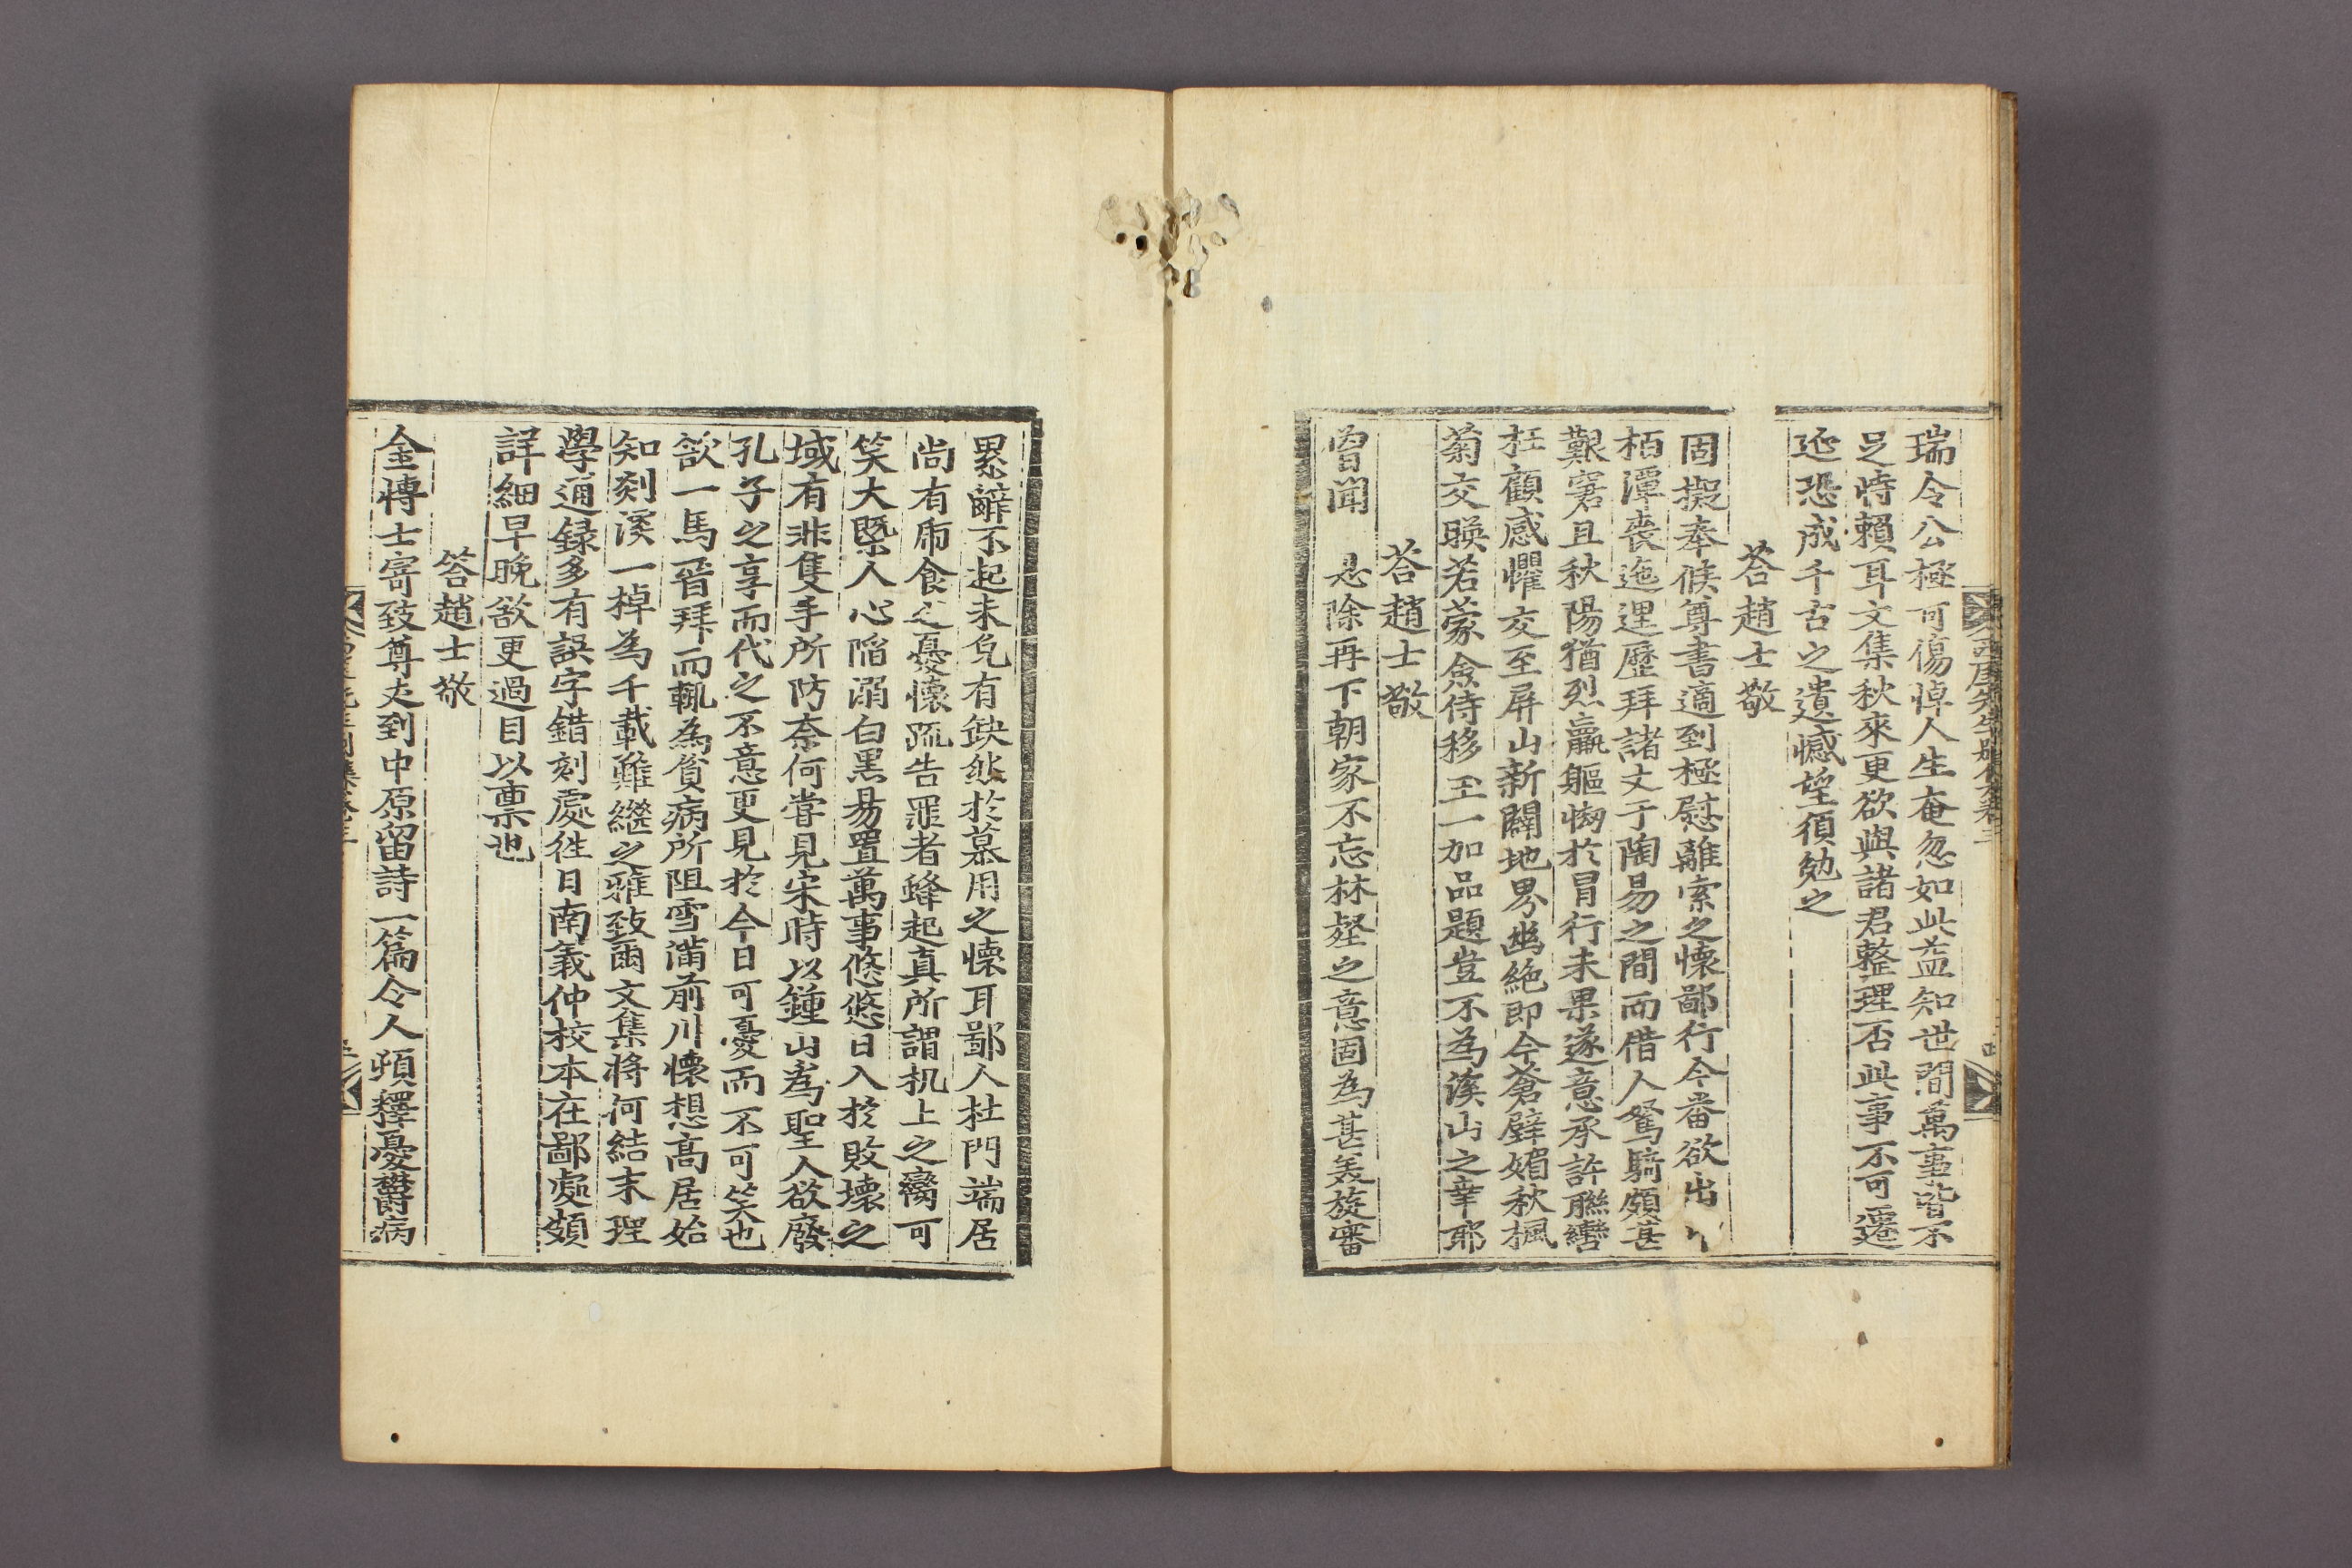 瑞令公極可傷悼人生奄忽如此益知世間萬事皆不
足恃賴耳文集秋來更欲與諸君整理否此事不可遷
延恐成千古之遺憾望須勉之
荅趙士敬
固擬奉候尊書適到極慰離索之懷鄙行今番欲出
栢潭喪迤邐歷拜諸丈于陶易之間而借人駑騎頗甚
艱窘且秋陽猶烈羸軀㤼於冒行未果遂意承許聯轡
枉顧感懼交至屏山新闢地界幽絶即今蒼壁媚秋楓
菊交暎若蒙僉侍移玉一加品題豈不為溪山之幸耶
荅趙士敬
曾聞 恩除再下朝家不忘林壑之意固為甚羙旋審
累辭不起未免有鈌然於慕用之懷耳鄙人杜門端居
尚有席食之憂懷疏告罪者蜂起真所謂机上之臠可
笑大槩人心陷溺白黑易置萬事悠悠日入於敗壞之
域有非隻手所防奈何嘗見宋時以鍾山為聖人欲廢
孔子之享而代之不意更見於今日可憂而不可笑也
欲一馬晉拜而輒為貧病所阻雪滿前川懷想高居始
知剡溪一棹為千載難繼之雅致爾文集將何結末理
學通錄多有誤字錯刻處徃日南義仲校本在鄙處頗
詳細早晚欲更過目以稟也
答趙士敬
金博士寄致尊丈到中原留詩一篇令人頓釋憂欝病